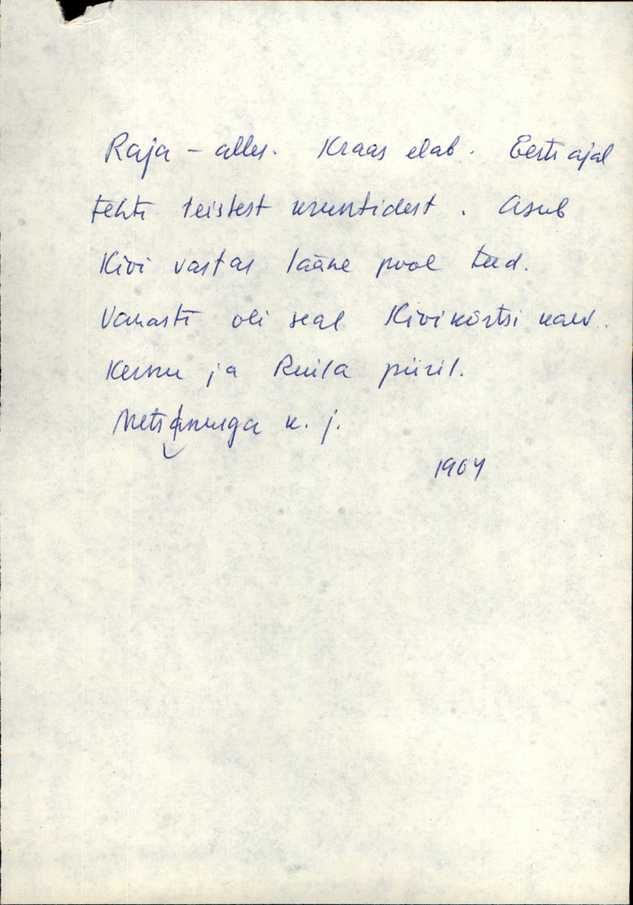 Raja – alles. Kraas elab. Eesti ajal
tehti teistest kruntidest. Asub
Kivi vastas lääne pool teed.
Vanasti oli seal Kivikõrtsi kaev.
Kernu ja Ruila piiril.
Metsänurga k. j.
1904